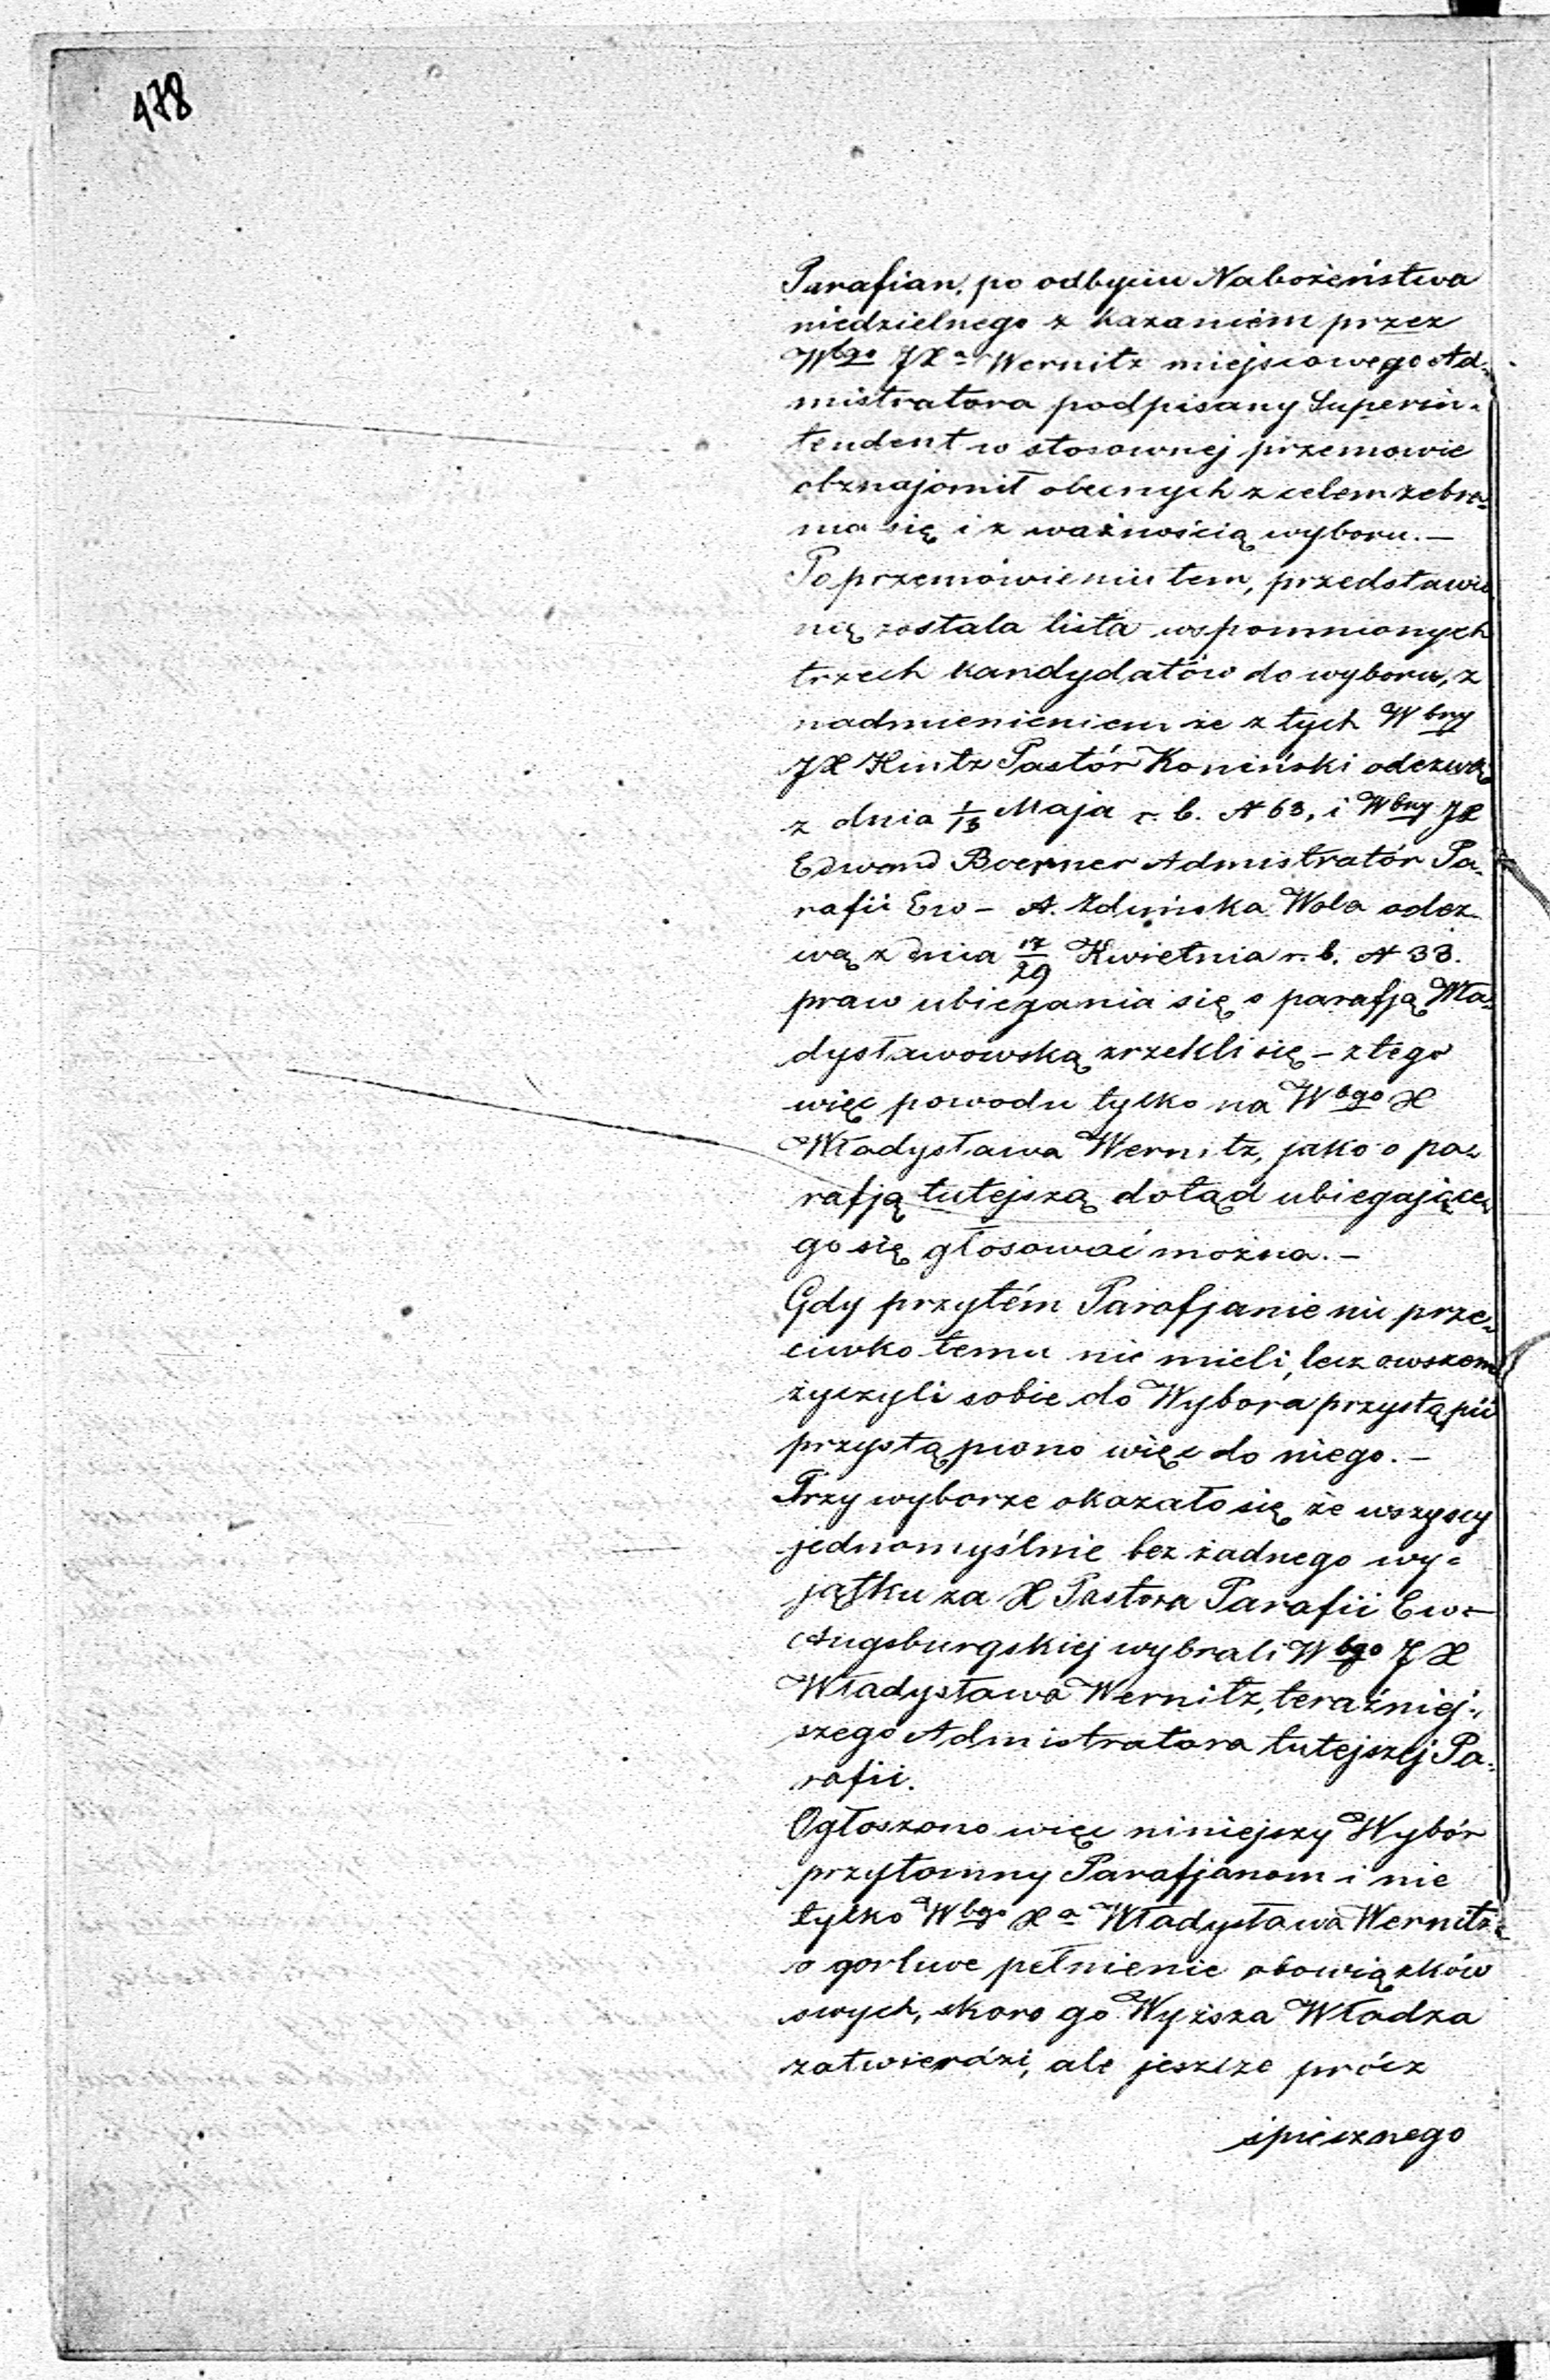 478
Parafian, po odbyciu Nabożeństwa
niedzielnego z kazaniem przez
Wbgo JXa Wernitz miejscowego Ad-
mistratora podpisany Superin-
tendent w stosownej przemowie
obznajomił obecnych z celem zebra-
nia się i z ważnością wyboru. —
Po przemówieniu tem, przedstawio-
ną została lista wspomnionych
trzech kandydatów do wyboru, z
nadmienieniem że z tych Wbny
JX Hintz Pastór Koniński odezwą
z dnia 1/13 Maja r. b. N 63, i Wbny JX
Edward Boerner Admistratór Pa-
rafii Ew - A. Zduńska Wola odez-
wą z dnia 17/29 Kwietnia r. b. N 33.
praw ubiegania się o parafją Wła-
dysławowską zrzekli się - z tego
więc powodu tylko na Wbgo X
Władysława Wernitz, jako o pa-
rafją tutejszą dotąd ubiegające-
go się głosować można. -
Gdy przytém Parafjanie nic prze-
ciwko temu nie mieli, lecz owszem
życzyli sobie do Wybora przystąpić
przystąpiono więc do niego. -
Przy wyborze okazało się że wszyscy
jednomyślnie bez żadnego wy-
jątku za X Pastora Parafii Ew-
Augsburgskiej wybrali Wbgo JX
Władysława Wernitz, teraźniej-
szego Admistratora tutejszej Pa-
rafii.
Ogłoszono więc niniejszy Wybór
przytomny Parafjanom i nie
tylko Wbgo Xa Władysława Wernitz
o gorliwe pełnienie obowiązków
swych, skoro go Wyższa Władza
zatwierdzi, ale jeszcze prócz
spiesznego